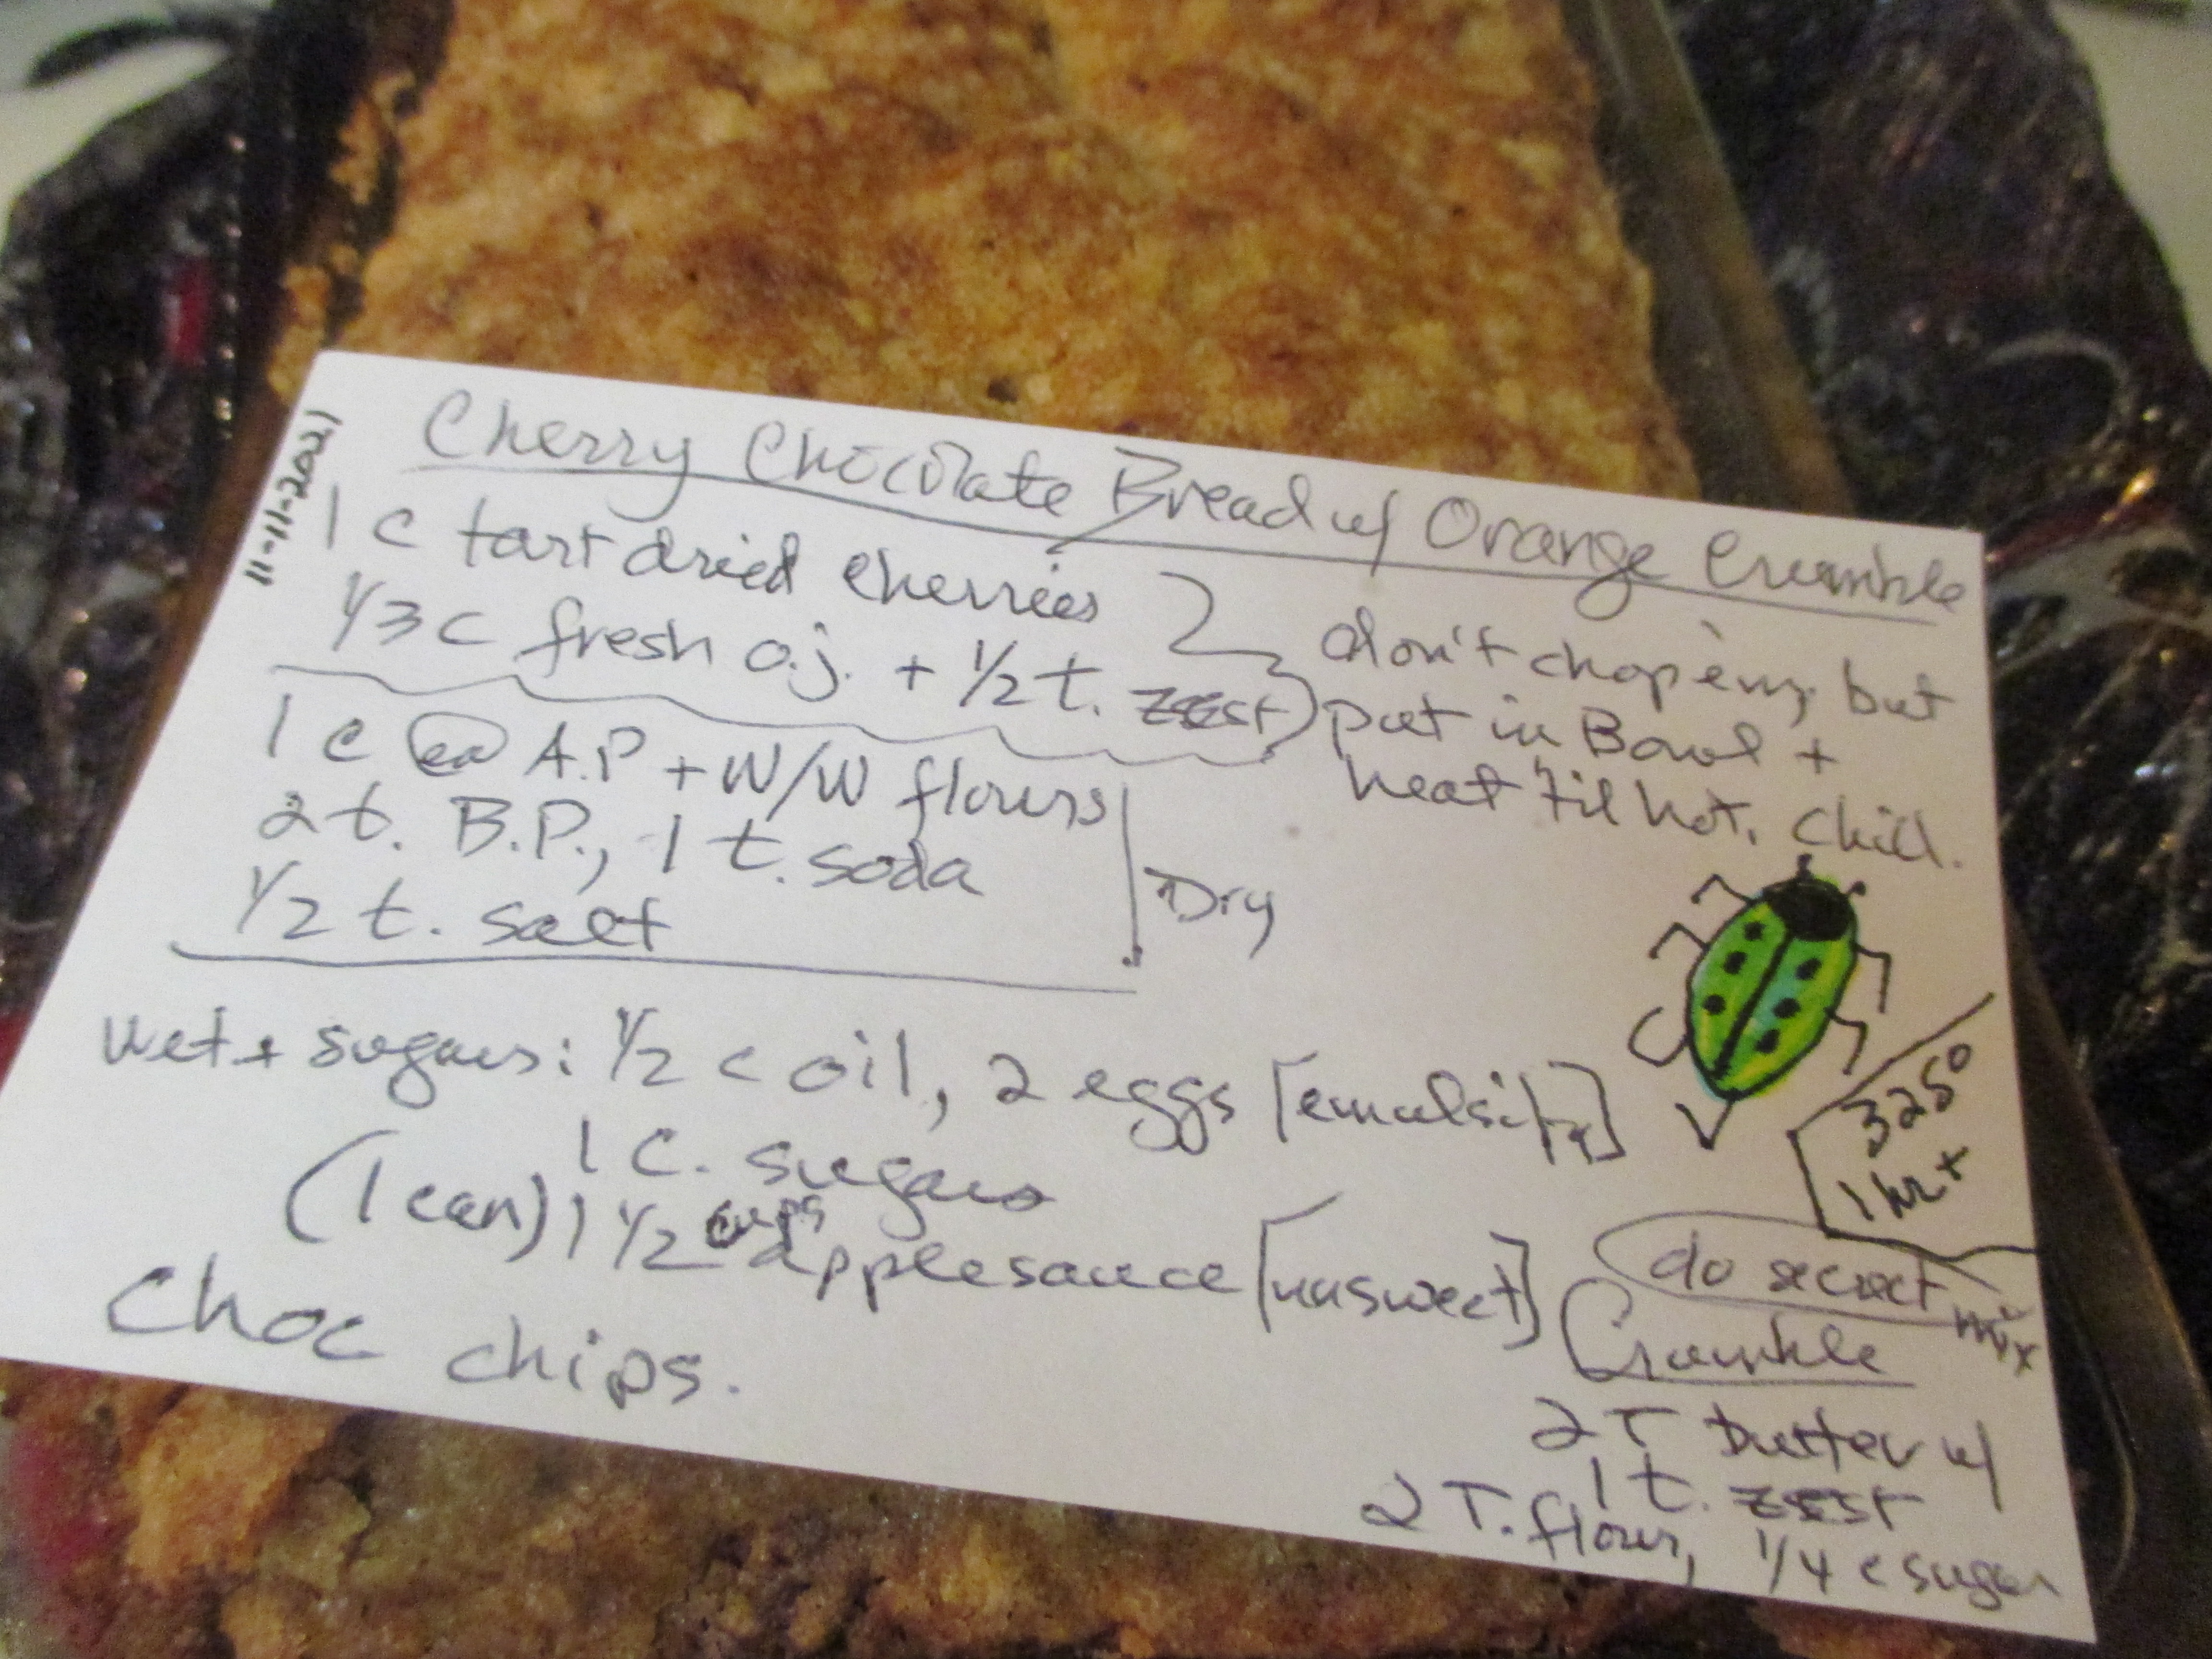 11-11-2021
Cherry Chocolate Bread w/ Orange Crumble
1 c tart dried cherries
1/3 c fresh o.j. + 1/2 t. zest
don't chop 'em, but
put in Bowl +
heat 'til hot. Chill.
1 c ea A.P + W/W flours
2 t. B.P., 1 t. soda
1/2 t. salt
Dry
wet + sugars: 1/2 c oil, 2 eggs [emulsify]
1 c. sugars
(1 can) 1 1/2 cups applesauce [unsweet]
Choc chips.
325°
1 hr +
do secret mix
Crumble
2 T butter w/
1 t. zest
2 T. flour, 1/4 c sugar